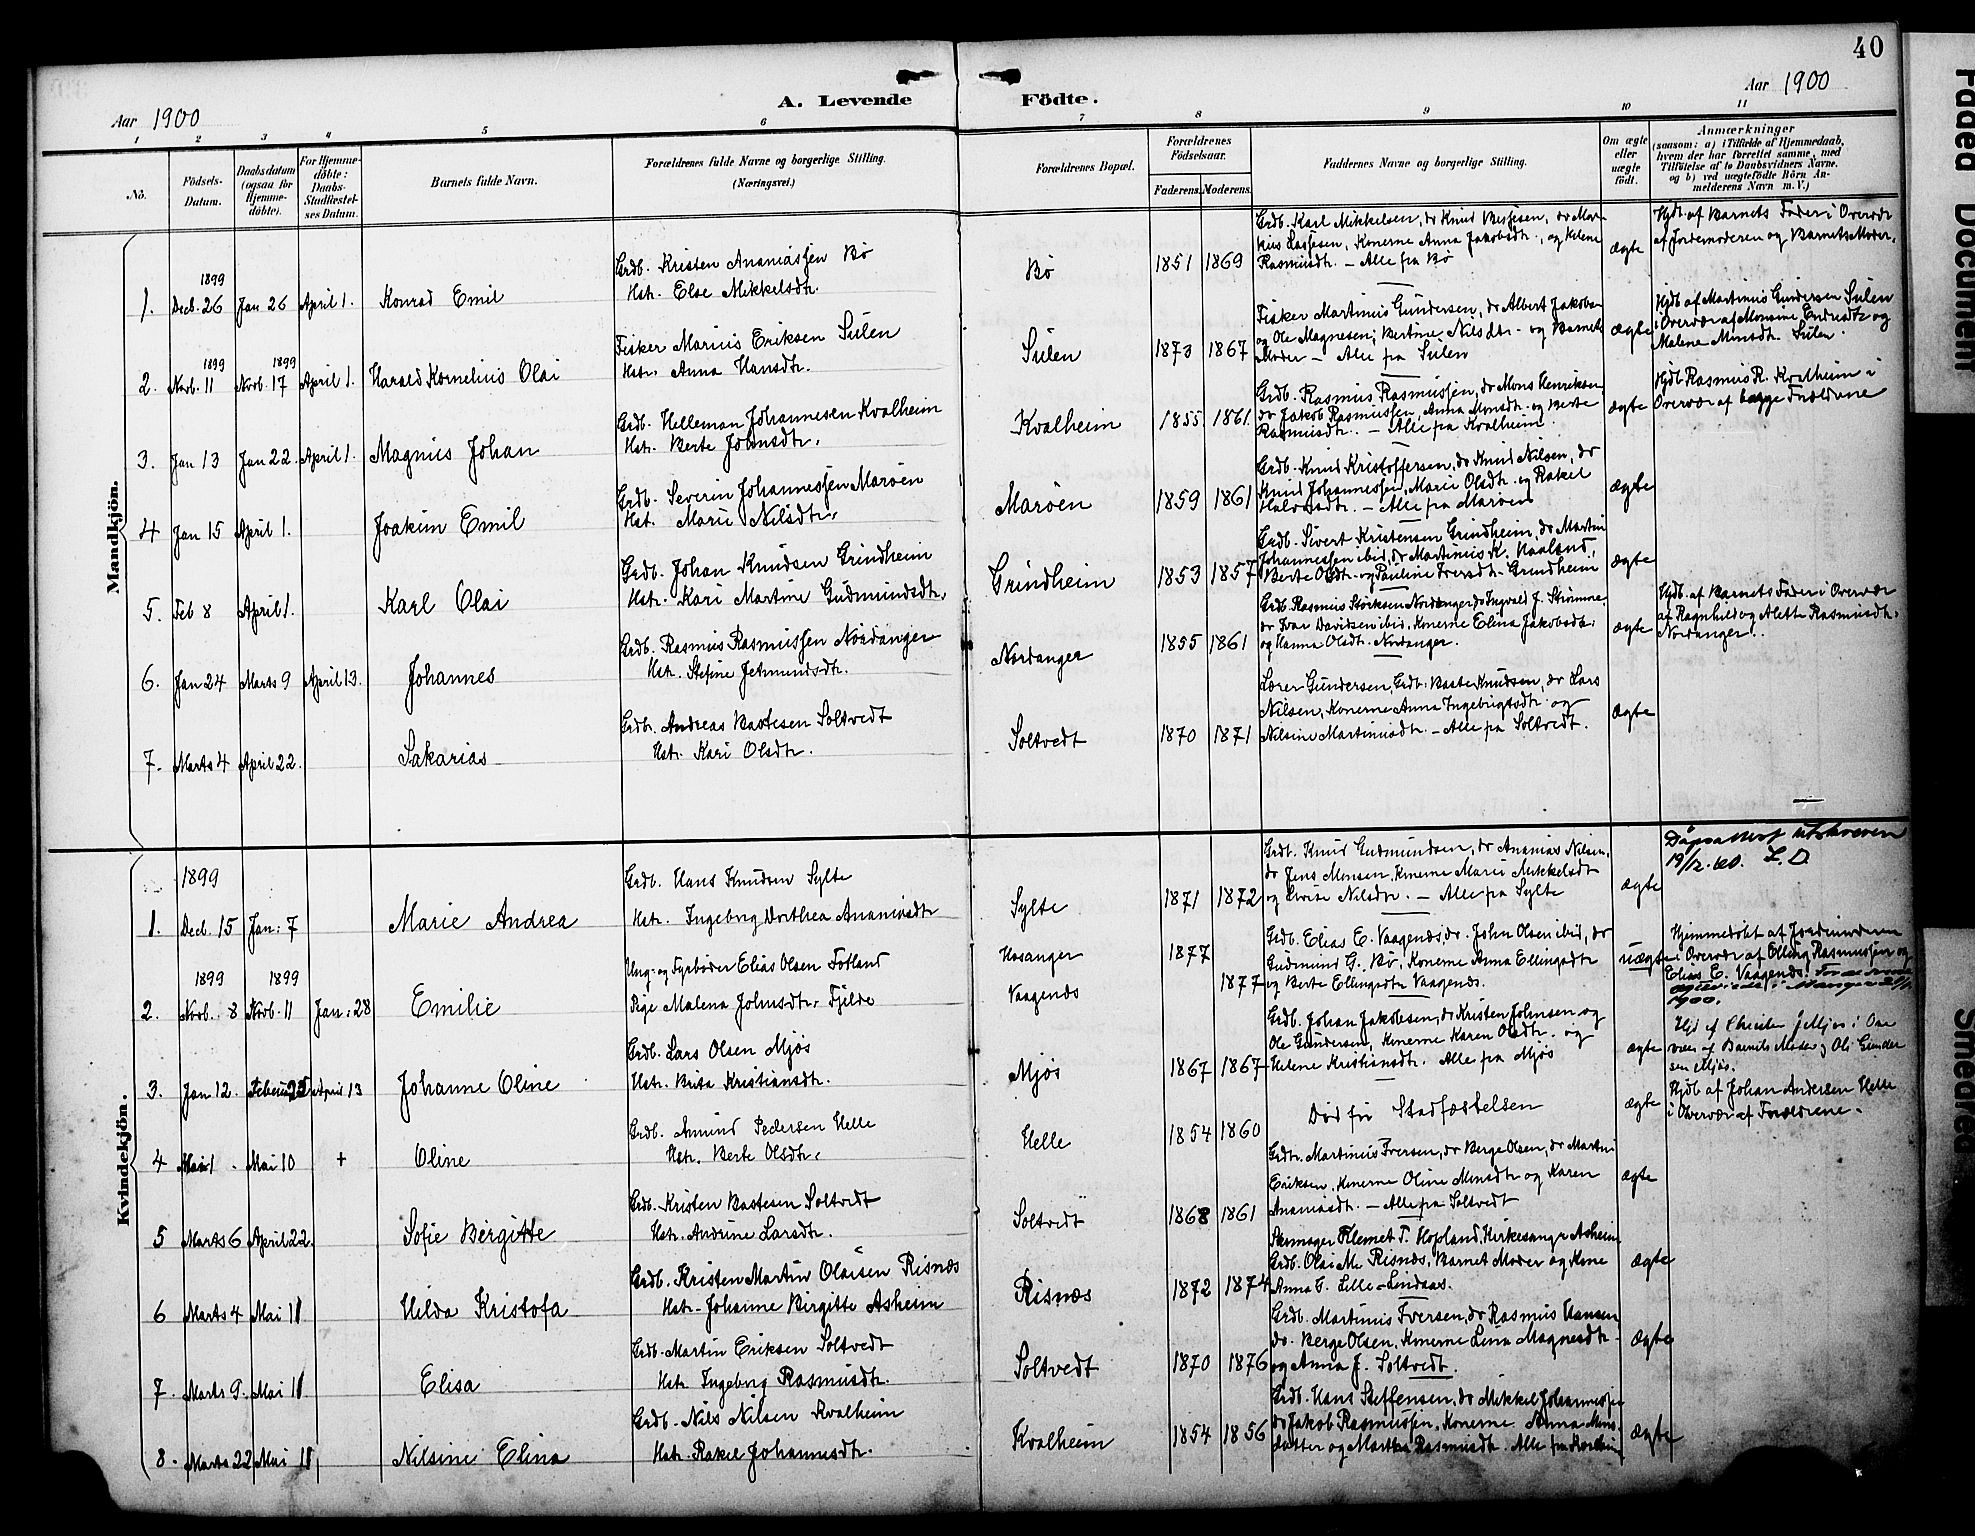 40
Aar 1900
A. Levende Födte.
Aar 1900
1 2 3 4 5 6 7 8 9 10 11
No.
Födsels-Datum.
Daabsdatum (ogsaa for Hjemme-döbte).
For Hjemme-döbte: Daabs-Stadfæstel-ses Datum.
Barnets fulde Navn.
Forældrenes fulde Navne og borgerlige Stilling.
(Næringsvei.)
Forældrenes Bopæl.
Forældrenes Födselsaar.
Faderens. Moderens.
Faddernes Navne og borgerlige Stilling.
Om ægte eller uægte født.
Anmærkninger
(saasom: a) i Tilfælde af Hjemmedaab, hvem der har forrettet samme, med Tilföielse af to Daabsvidners Navne, og b) ved uægtefødte Börn Anmelderens Navn m. V.)
Mandkjön.
1899
1. Decb. 26 Jan 26 April 1. Konrad Emil
Grdb. Kristen Ananiassen Bø
Hstr. Else Mikkelsdtr.
Bø 1851 1869
Grdb. Karl Mikkelsen, do Knud
Rasmusdtr. – Alle fra Bø
ægte
Hjdb. af Barnets Fader i Overvær
af Jordemoderen og Barnets Moder.
1899 1899
2. Novb. 11 Novb. 17 April 1. Harald Kornelius Olai
Fisker Marius Eriksen Sulen
Hstr. Anna Hansdtr.
Sulen 1873 1867
Fisker Martinius Gundersen, do Albert Jakobsen
og Ole Magnesen, Bertine Nilsdtr. og Barnets
Moder – Alle fra Sulen
ægte
Hjdb. af Martinius Gundersen Sulen
Malene Monsdtr. Sulen.
3. Jan 13 Jan 22. April 1. Magnus Johan
Grdb. Helleman Johannesen Kvalheim
Hstr. Berte Johnsdtr.
Kvalheim 1855 1861
Grdb. Rasmus Rasmussen, do Mons Henriksen
do Jakob Rasmussen, Anna Monsdtr. og Berte
Rasmusdtr. – Alle fra Kvalheim.
ægte
Hjdb. Rasmus R. Kvalheim i
Overvær af begge Forældrene
4 Jan 15 April 1. Joakim Emil
Grdb. Severin Johannessen Marøen
Hst. Marie Nilsdtr.
Marøen 1859 1861
Grdb. Knud Kristoffersen, do Knud Nilsen, do
Knud Johannessen, Marie Olsdtr. og Rakel
Halvorsdtr. – Alle fra Marøen
ægte
5. Feb 8 April 1. Karl Olai
Grdb. Johan Knudsen Grindheim
Hstr. Kari Martine Gudmundsdtr.
Grindheim 1853 1857
Grdb. Sivert Kristensen Grindheim, do Martin
Johannessen ibid, do Martinius K. Haaland,
Berte Olsdtr. og Pauline Iversdtr. Grindheim
ægte
6. Jan 24 Marts 9 April 13. Johannes
Grdb. Rasmus Rasmussen Nordanger
Hstr. Stefine Jetmundsdtr.
Nordanger 1855 1861
Grdb. Rasmus Størksen Nordanger, do Ingvald J. Strømme,
do Ivar Davidsen ibid, Konerne Elina Jakobsdtr.
og Hanna Olsdtr. Nordanger.
ægte
Hjdb. af Barnets Fader i Overvær
af Ragnhild og Alette Rasmusdtr.
Nordanger.
7. Marts 4 April 22. Sakarias
Grdbr. Andreas Bastesen Soltvedt
Hstr. Kari Olsdtr.
Soltvedt 1870 1871
Lærer Gundersen, Grdb. Baste Knudsen, do Lars
Nilsen, Konerne Anna Ingebrigtsdtr. og
Nilsine Martinusdtr. – Alle fra Soltvedt.
ægte
Kvindekjön.
1899
1. Decb. 15 Jan: 7 Marie Andrea
Grdb. Hans Knudsen Sylte
Hstr. Ingeborg Dorthea Ananiasdtr
Sylte 1871 1872
Grdb. Knud Gudmundsen, do Ananias Nilsen,
do Jens Monsen, Konerne Marie Mikkelsdtr
og Lovise Nilsdtr. – Alle fra Sylte
ægte
Dåpsattest utskreven
19/12.60. L. D.
1899 1899
2. Novb. 8 Novb. 11 Jan: 28 Emilie
Ung. og Fyrbøder Elias Olsen Fotland
Pige Malena Johnsdtr. Fjelde
Hosanger 1877
Vaagenes 1877
Grdb. Elias E. Vaagenes, do. John Olsen ibid, do
Gudmund G. Bø, Konerne Anna Ellingsdtr
og Berte Ellingsdtr Vaagenes.
uægte
Hjemmedøbt af Jordmoderen
i Overvær af Elling Rasmussen og
Elias E. Vaagenes.
1900.
3. Jan 12. Februar 25 April 13 Johanne Oline
Grdb. Lars Olsen Mjøs
Hstr. Brita Kristiansdtr.
Mjøs 1867 1867
Grdb. Johan Jakobsen, do Kristen Johnsen og
Ole Gundersen, Konerne Karen Olsdtr. og
Helene Kristiansdtr. Alle fra Mjøs
ægte
sen Mjøs.
4 Mai 1. Mai 10 + Oline
Grdb. Amund Pedersen Helle
Hstr. Berte Olsdtr.
Helle 1854 1860
Død før Stadfæstelsen
ægte
Hjdb af Johan Andersen Helle
i Overvær af Forældrene.
5 Marts 6 April 22. Sofie Bergitte
Grdb. Kristen Bastesen Soltvedt
Hstr. Andrine Larsdtr.
Soltvedt 1868 1861
Grdtr. Martinius Iversen, do Berge Olsen, do Martin
Eriksen, Konerne Oline Monsdtr og Karen
Ananiasdtr. – Alle fra Soltvedt
ægte
6 Marts 4 Mai 11 Hilda Kristofa
Grdb. Kristen Martin Olaisen Risnæs
Hstr. Johanne Birgitte Asheim
Risnæs 1872 1874
Skomager Klemet T. Hopland, Kirkesanger Asheim
Grdb. Olai M. Risnæs, Barnets Moder og Kone
Anna E. Lille-Lindaas.
ægte
7. Marts 9. Mai 11 Elisa
Grdb. Martin Eriksen Soltvedt
Hstr. Ingeborg Rasmusdtr.
Soltvedt 1870 1876
Grdb. Martinius Iversen, do Rasmus Hansen
do. Berge Olsen, Konerne Lina Magnesdtr.
og Anna J. Soltvedt.
ægte
8. Marts 22 Mai 11 Nilsine Elina
Grdb. Nils Nilsen Kvalheim
Hstr. Rakel Johannesdtr.
Kvalheim 1854 1856
Grdb. Hans Steffensen, do Mikkel Johannessen
do Jakob Rasmussen, Konerne Anna Mons
datter og Martha Rasmusdtr. Alle fra Kvalheim
ægte
Faded Document
Smedred